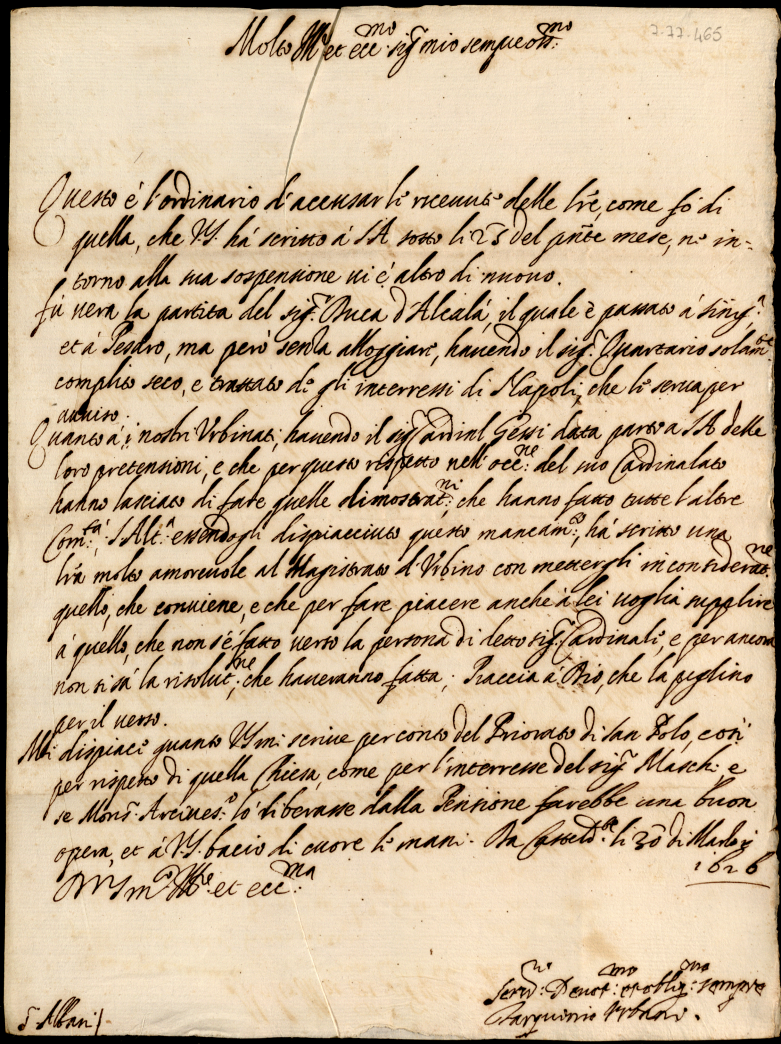 7.77.465
Molto Ill.e et ecc.mo sig.r mio sempre oss.mo
Questo è l'ordinario d'accusar le ricevute delle lr̃e, come fò di
quella, che V.S. hà scritto à S.A. sotto li 25 del pn̄te mese, ne in-
torno alla sua sospensione vi è altro di nuovo.
Fù vera la partita del sig.r Duca d'Alcalà, il quale è passato à Sinig.a
et à Pesaro, ma però senza alloggiare, havendo il sig.r Quartario solam.te
complito seco, e trattato de gli interressi di Napoli, che le serva per
avviso.
Quanto à i nostri Urbinati, havendo il sig.r Cardinal Gessi data parte a S.A. delle
loro pretensioni, e che per questo rispetto nell'occ.ne del suo Cardinalato
hanno lasciato di fare quelle dimostrat.ni, che hanno fatto tutte l'altre
Com.tà, S. Alt.a essendogli dispiacciuto questo mancam.to, hà scritto una
lr̃a molto amorevole al Magistrato d'Urbino con mettergli in considerat.ne
quello, che conviene, e che per fare piacere anche à lei voglia supplire
à quello, che non s'è fatto verso la persona di detto sig.r Cardinale, e per ancora
non si sà la risolut.ne, che haveranno fatta; Piaccia à Dio, che la piglino
per il verso.
Mi dispiace quanto V.S. mi scrive per conto del Priorato di San Polo, così
per rispetto di quella Chiesa, come per l'interresse del sig.r Masch.; e
se Mons.r Arcives.o lo liberasse dalla Pensione farebbe una buon
opera, et à V.S. bacio di cuore le mani. Da Casteld.te li 30 di Marzo
1626
Di V.S. m.o Ill.e et ecc.ma
Serv.re Devot.mo et oblig.mo sempre
Tarquinio Urbani.
S. Albani